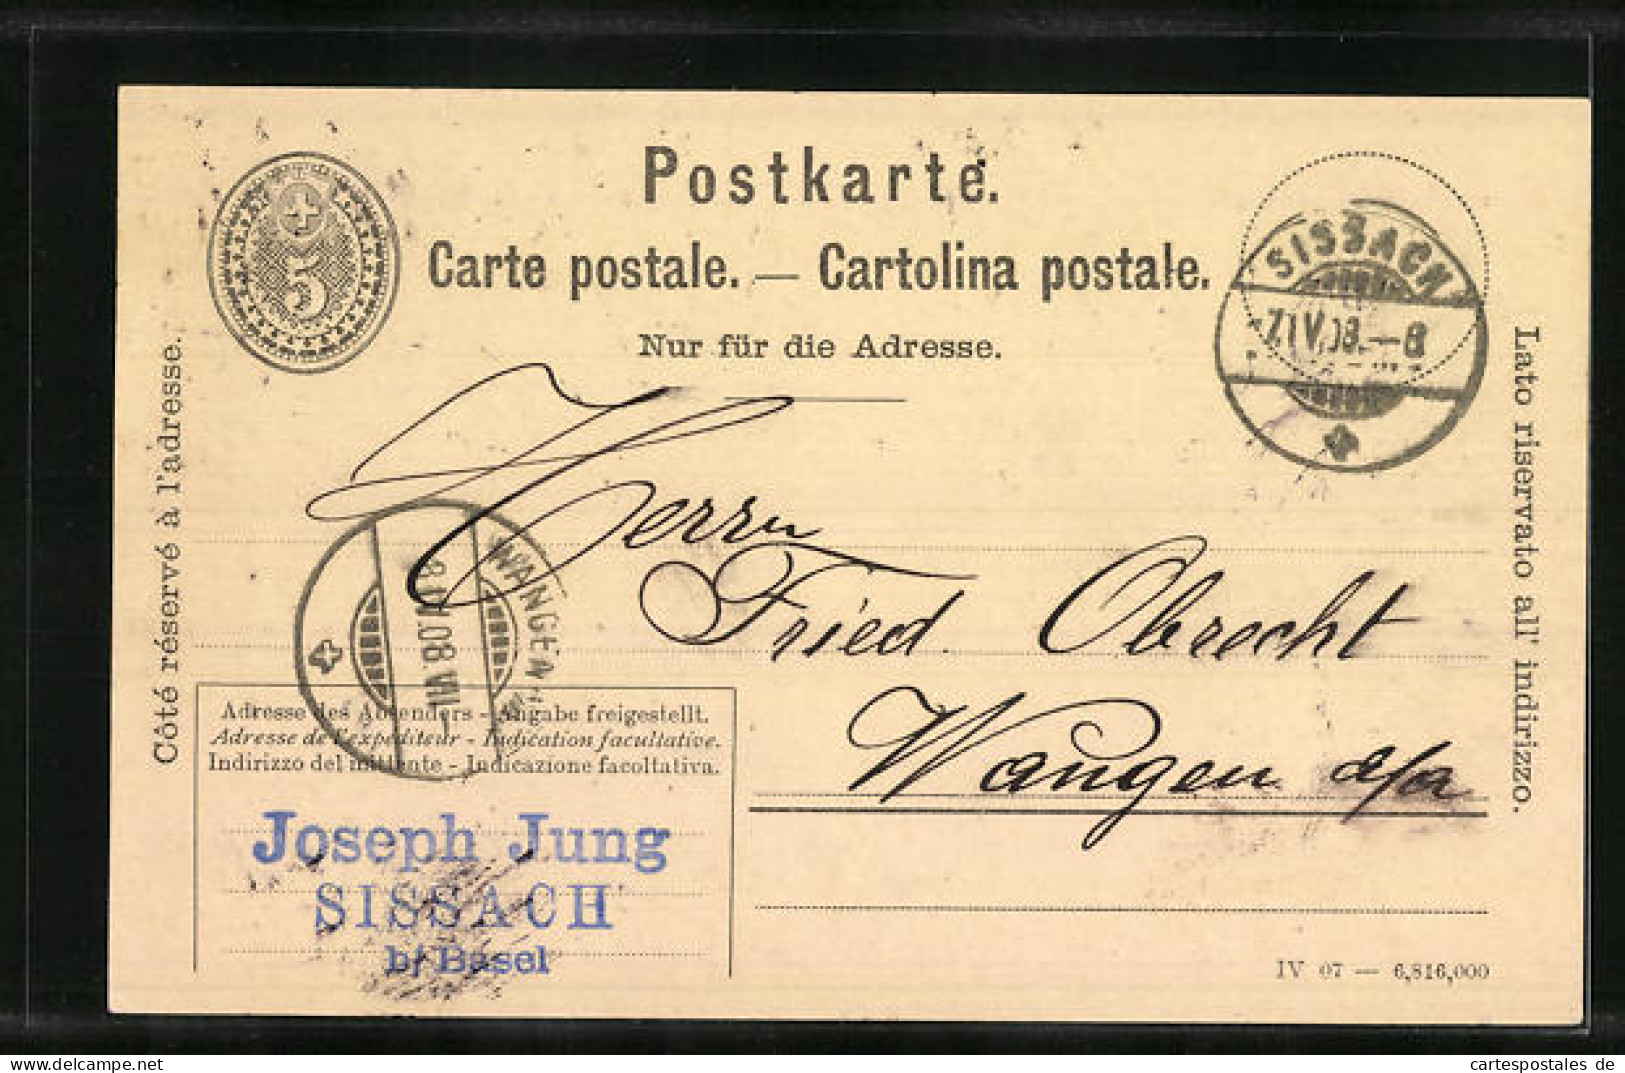 Postkarte.
Carte postale. — Cartolina postale.
Nur für die Adresse.
5
Côté réservé à l'adresse.
Lato riservato all' indirizzo.
SISSACH
7.IV.08.—8
Herrn
Fried. Obrecht
Wangen a/a
WANGEN
Adresse des Absenders - Angabe freigestellt.
Adresse de l'expéditeur - Indication facultative.
Indirizzo del mittente - Indicazione facoltativa.
Joseph Jung
SISSACH
b/ Basel
IV 07 — 6,816,000
cartespostales de